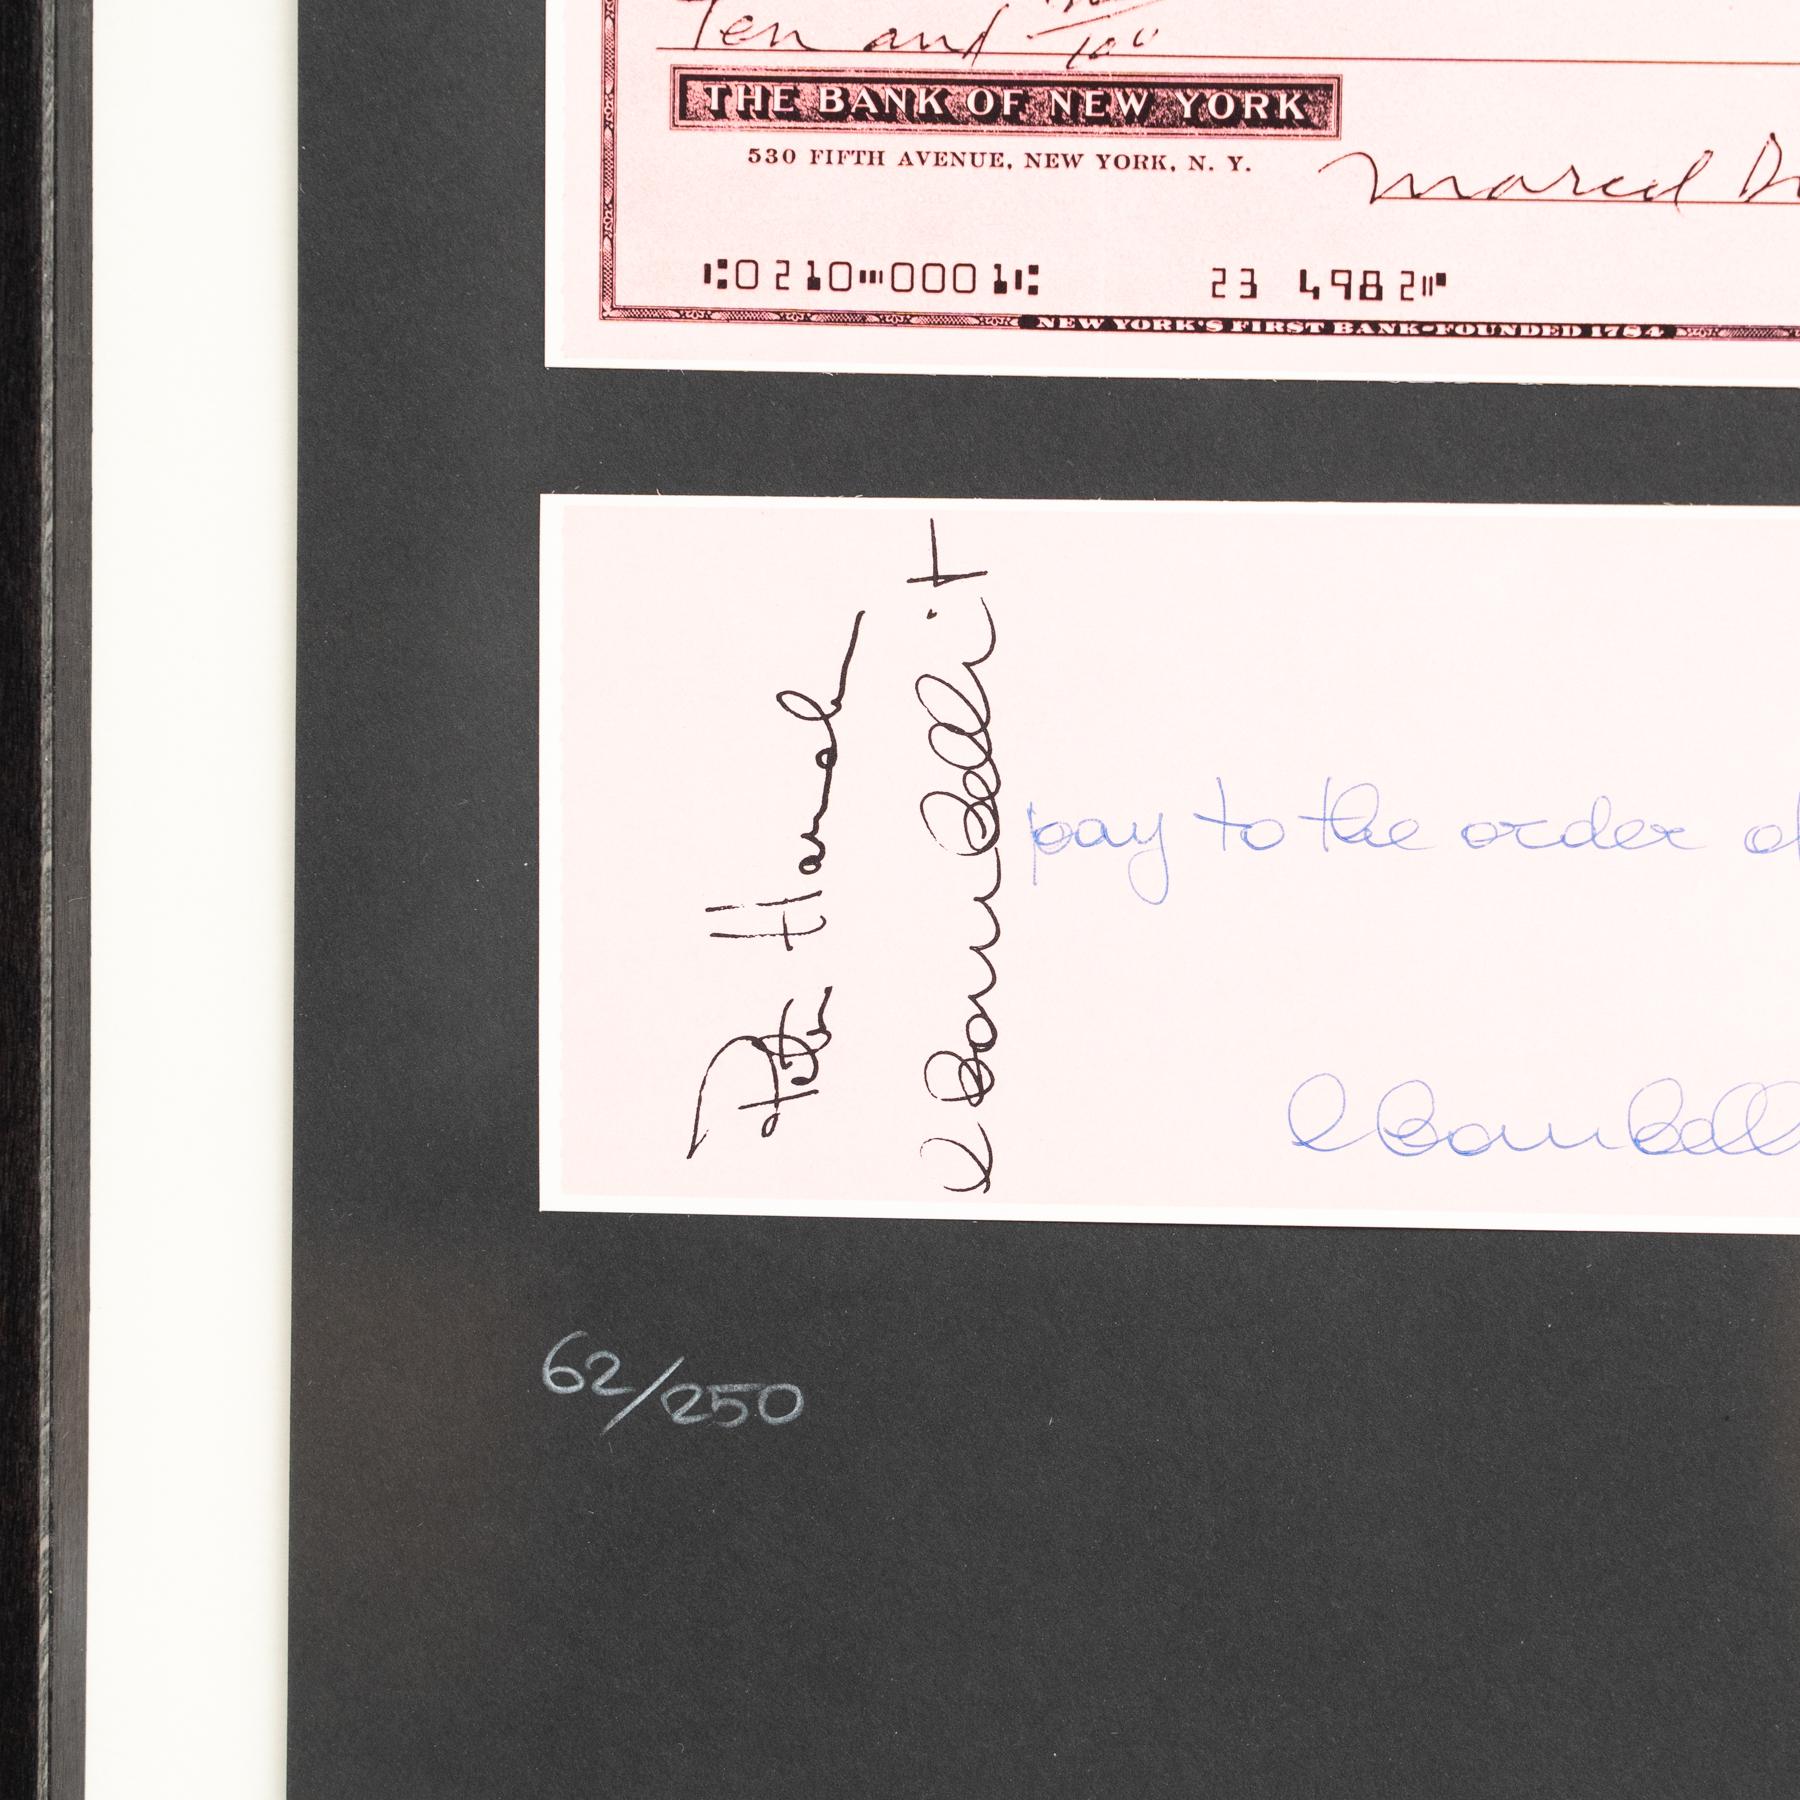 Ten and /100
THE BANK OF NEW YORK
530 FIFTH AVENUE, NEW YORK, N. Y.
Marcel
⑆0210⑉0001⑆ 23 4982⑈
NEW YORK'S FIRST BANK-FOUNDED 1784
Peter
pay to the order of
62/250